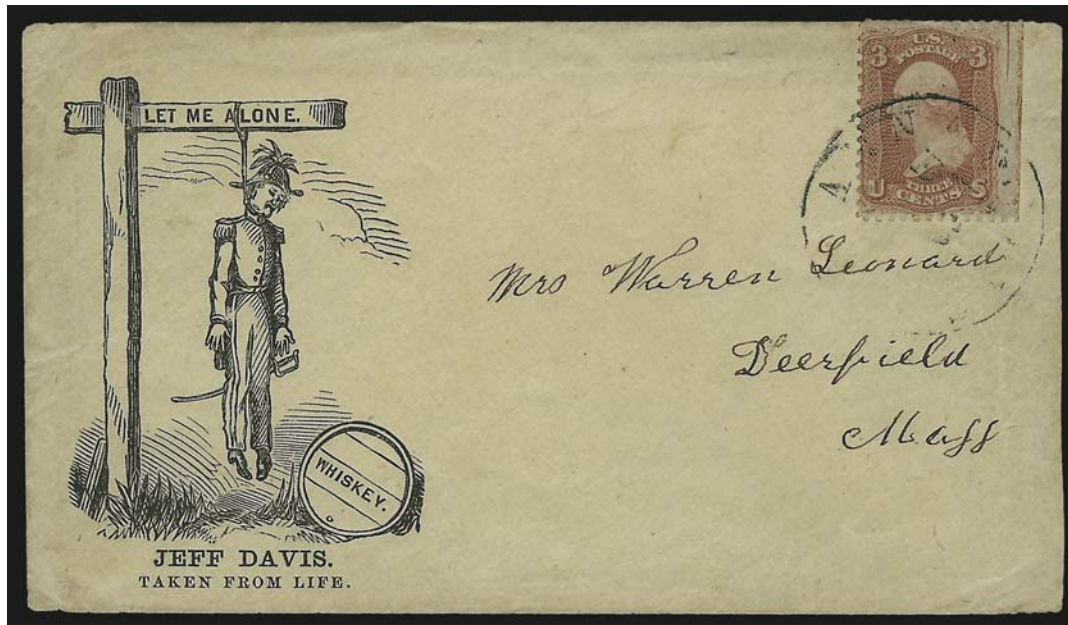 LET ME ALONE.
WHISKEY.
JEFF DAVIS.
TAKEN FROM LIFE.
3 U.S. 3
POSTAGE
U THREE S
CENTS
Mrs Warren Leonard
Deerfield
Mass